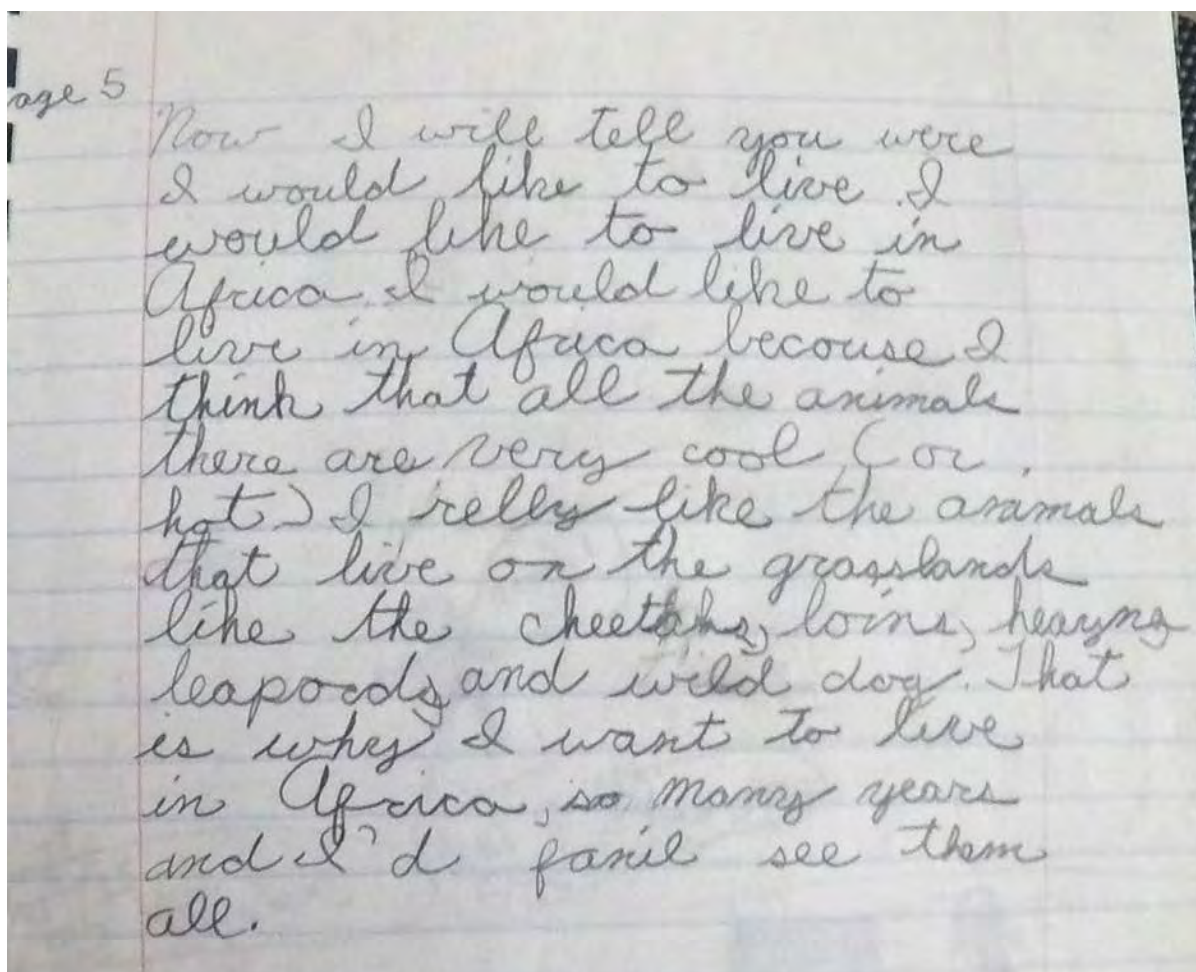 age 5
Now I will tell you were
I would like to live. I
would like to live in
Africa. I would like to
live in Africa becouse I
think that all the animals
there are very cool (or
hot) I relly like the animals
that live on the grasslands
like the cheetahs, loins,
leapords, and wild dog. That
is why I want to live
in Africa, so many years
and I'd see them
all.